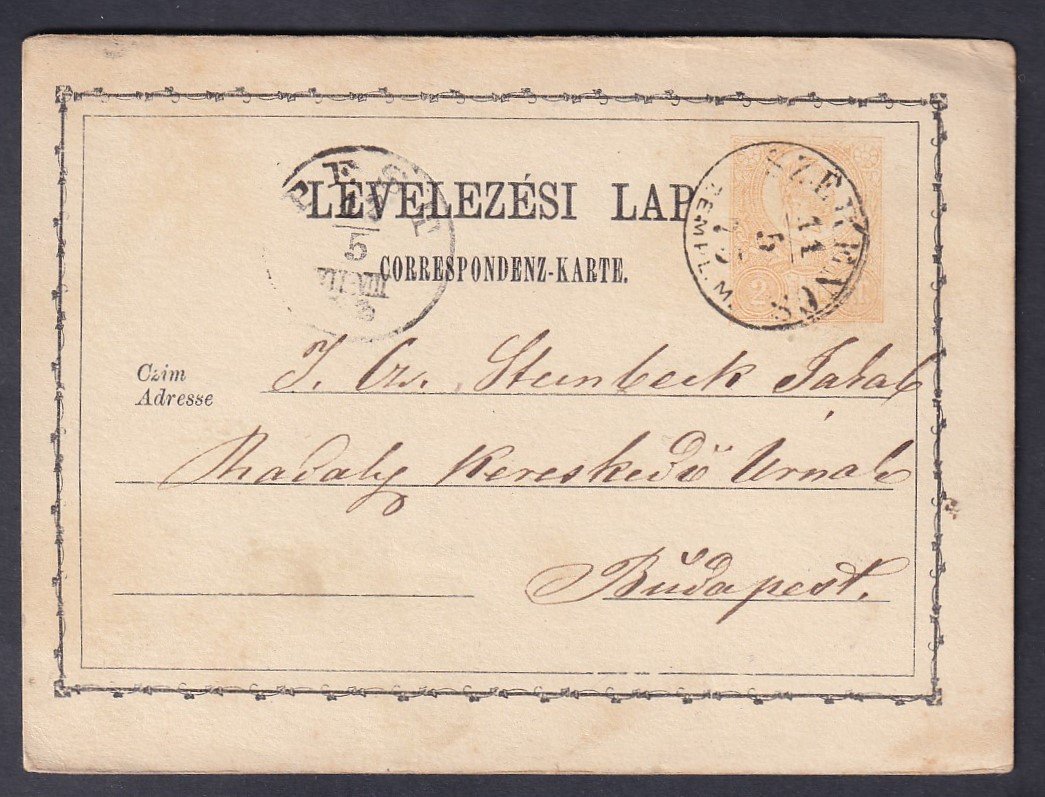 LEVELEZÉSI LAP
CORRESPONDENZ-KARTE.
PEST
5
VII-VIII
SZERENCS
11
5
ZEMPL. M.
2
Czim
Adresse
T. Cz. Steinbeck Jakab
Nadály Kereskedő Urnak
Budapest.